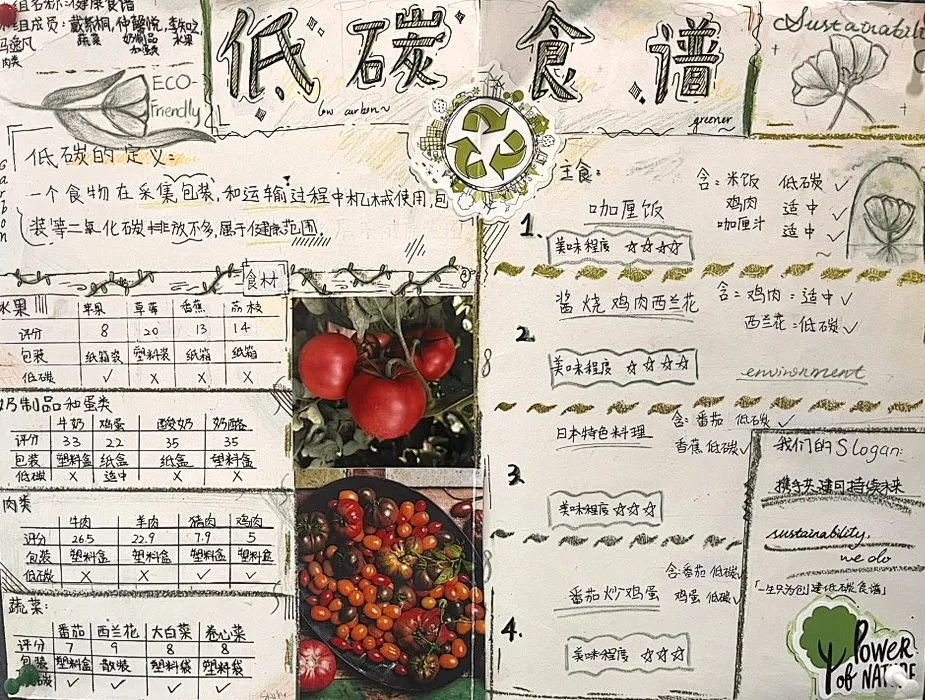 组名称:健康食谱
组成员:戴紫桐,仲馨悦,李知之,
蔬菜 奶制品和蛋类 水果
逸凡
肉类
低碳食谱
low carbon~
greener~
Sustainabili
ECO-
Friendly
Carbon
低碳的定义:
一个食物在采集包装,和运输过程中机械使用,包
装等二氧化碳排放不多,属于健康范围.
食材
水果
苹果 草莓 香蕉 荔枝
评分 8 20 13 14
包装 纸箱装 塑料装 纸箱 纸箱
低碳 ✓ X X X
奶制品和蛋类
牛奶 鸡蛋 酸奶 奶酪
评分 33 22 35 35
包装 塑料盒 纸盒 纸盒 塑料盒
低碳 X 适中 X X
肉类
牛肉 羊肉 猪肉 鸡肉
评分 26.5 22.9 7.9 5
包装 塑料盒 塑料盒 塑料盒 塑料盒
低碳 X X ✓ ✓
蔬菜:
番茄 西兰花 大白菜 卷心菜
评分 7 9 8 8
包装 塑料盒 散装 塑料袋 塑料袋
低碳 ✓ ✓ ✓ ✓
主食:
1. 咖喱饭
含:米饭 低碳 ✓
鸡肉 适中 ✓
咖喱汁 适中 ✓
美味程度 ☆☆☆☆
2. 酱烧鸡肉西兰花
含:鸡肉:适中 ✓
西兰花:低碳 ✓
美味程度 ☆☆☆☆
environment
3. 日本特色料理
含:番茄 低碳 ✓
香蕉 低碳 ✓
美味程度 ☆☆☆
4. 番茄炒鸡蛋
含:番茄 低碳
鸡蛋 低碳 ✓
美味程度 ☆☆☆
我们的Slogan:
携手共建可持续未来
sustainability,
we do
「一生只为创建低碳食谱」
Power
of NATURE